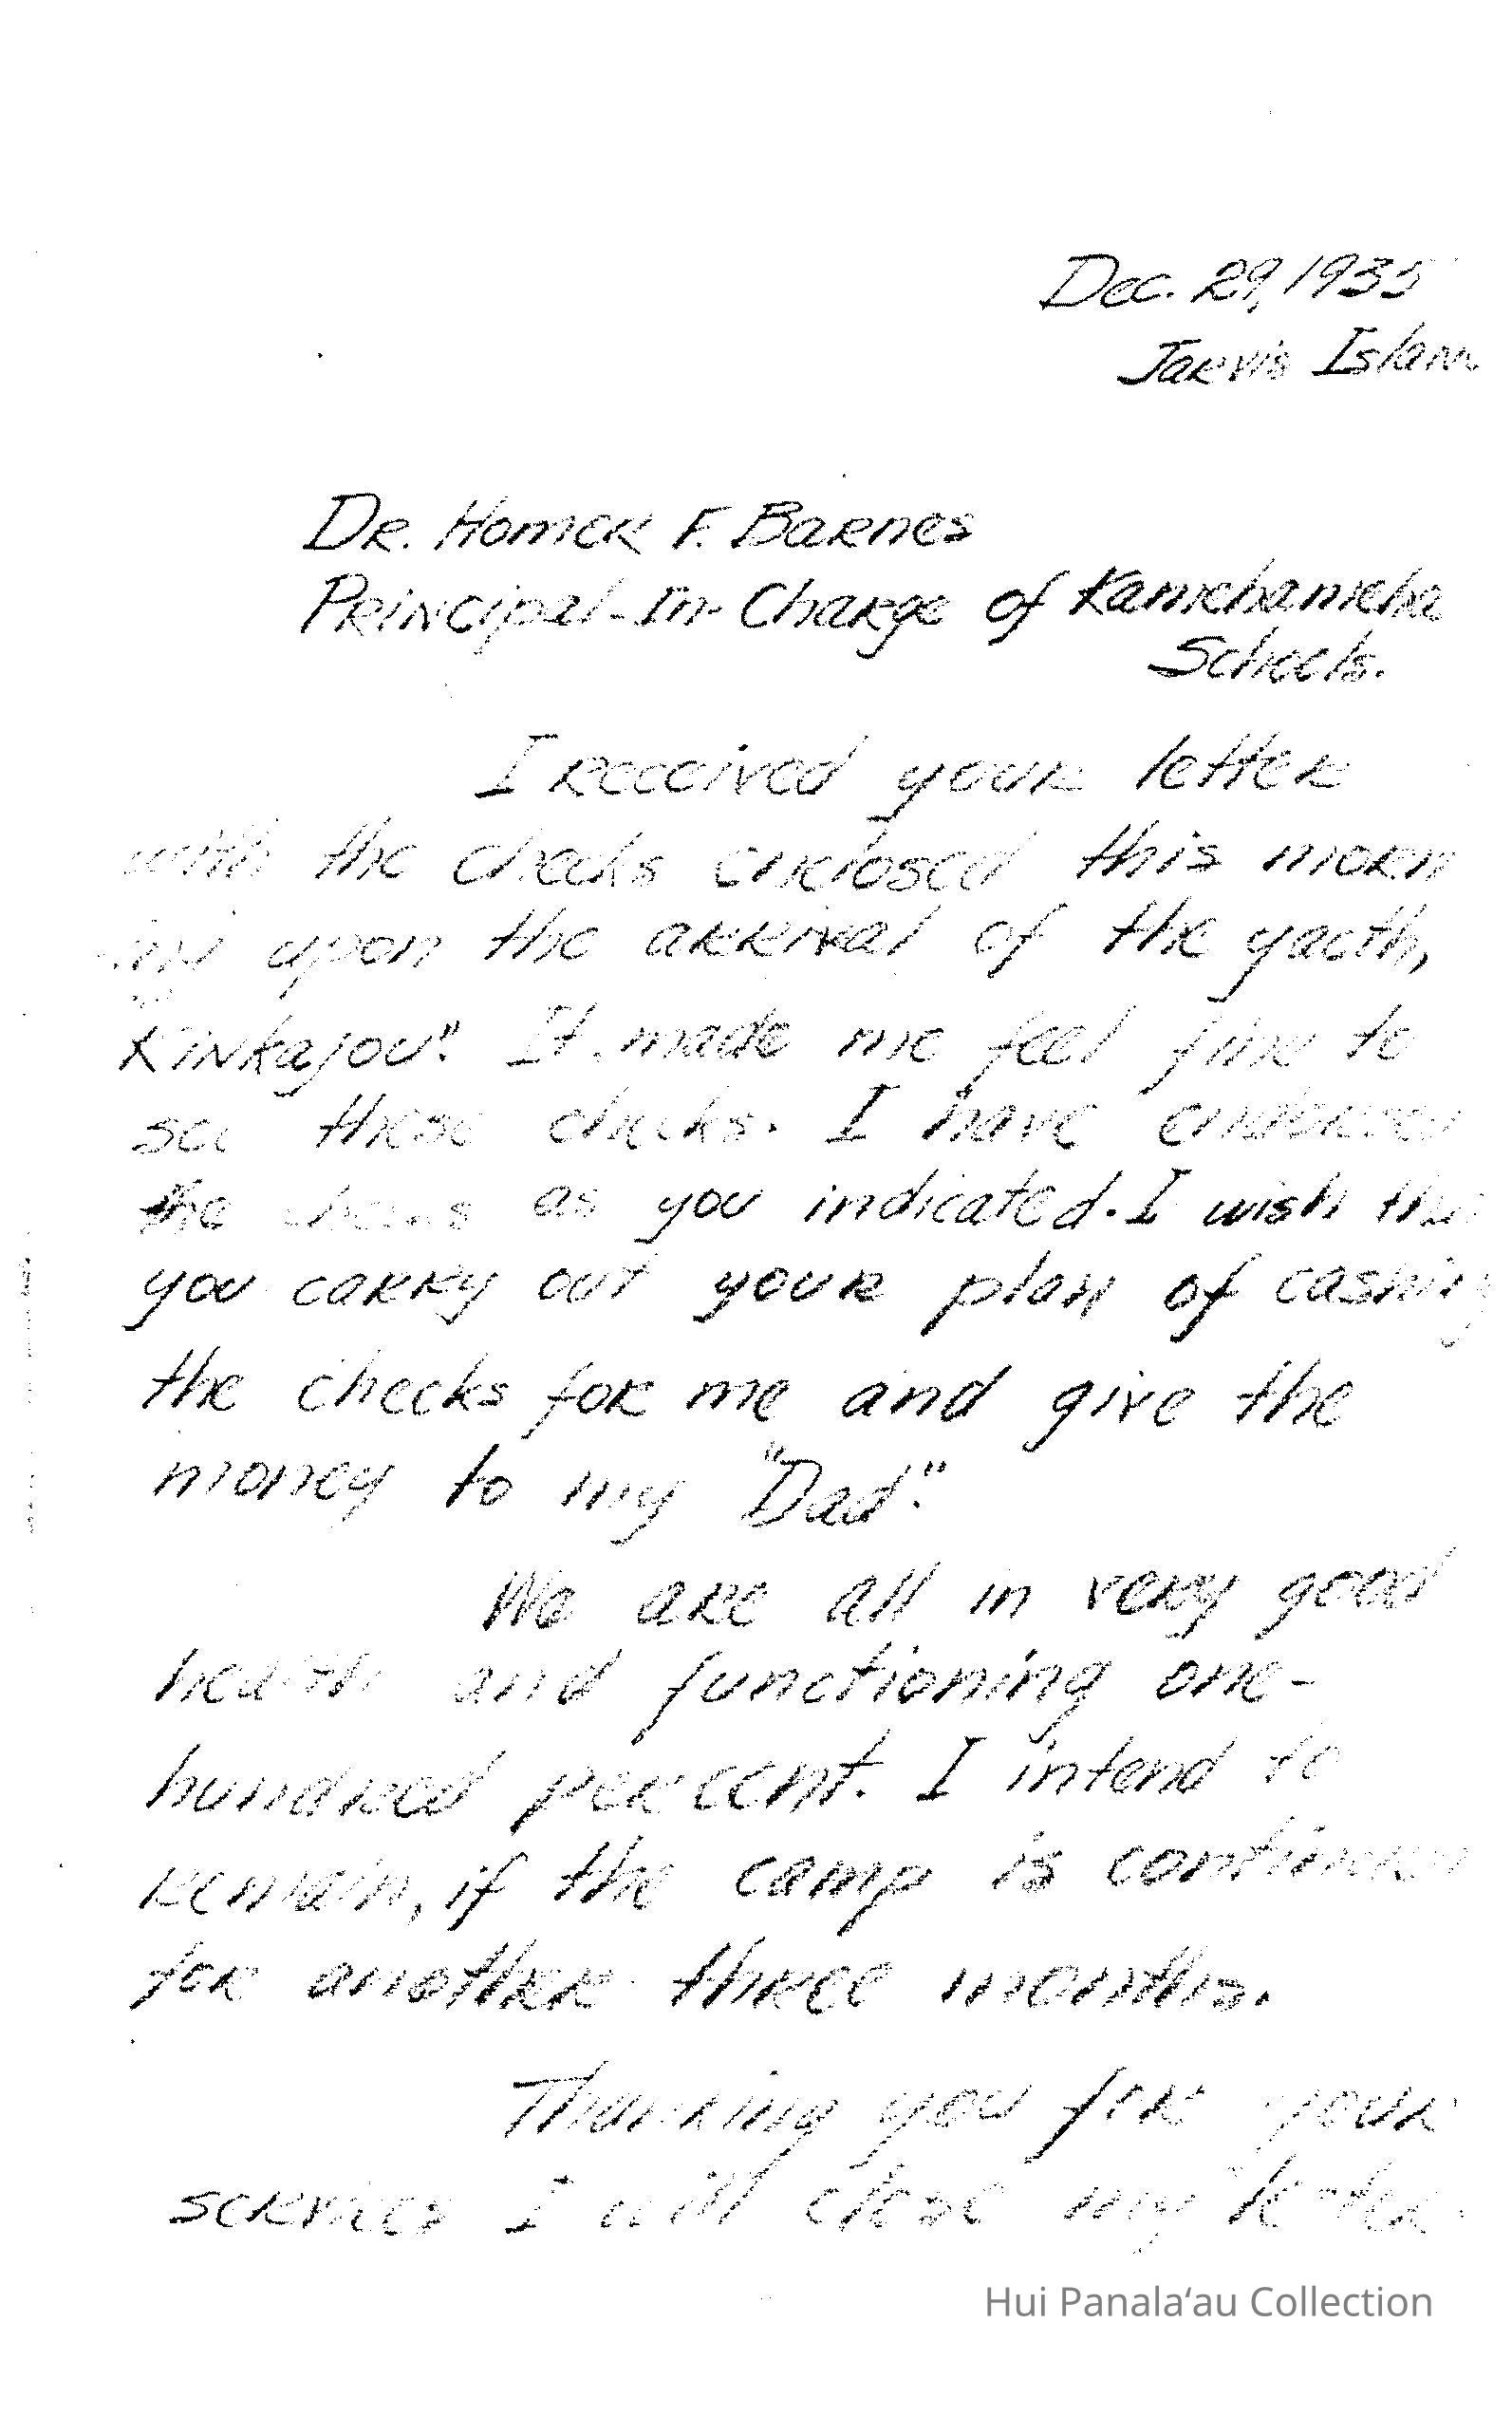 Dec. 29, 1935
Jarvis Islan
Dr. Homer F. Barnes
Principal-In-Charge of Kamehameha
Schools.
I received your letter
with the checks enclosed this morn
ing upon the arrival of the yacth,
"Kinkajou". It made me feel fine to
see these checks. I have endorsed
the checks as you indicated. I wish that
you carry out your plan of cashing
the checks for me and give the
money to my "Dad".
We are all in very good
health and functioning one-
hundred percent. I intend to
remain, if the camp is continued
for another three months.
Thanking you for your
services I will close my letter.
Hui Panalaʻau Collection